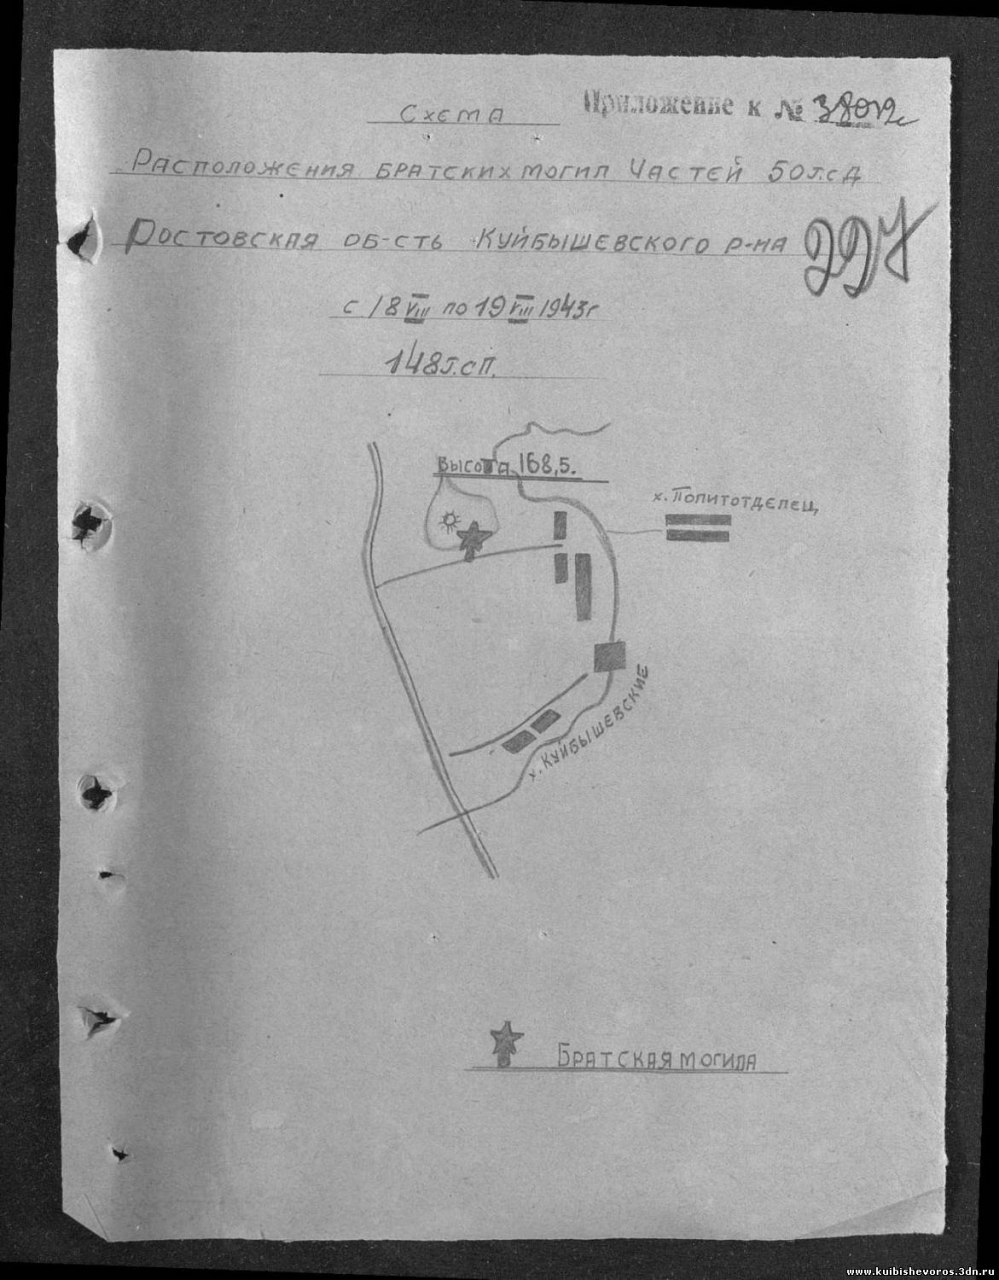 Приложение к № 38012с
Схема
Расположения братских могил Частей 50 г.с.д
Ростовская об-сть Куйбышевского р-на
227
с 18 VIII по 19 VIII 1943г
148 г.с.п.
Высота 168,5.
х. Политотделец
х. Куйбышевские
Братская могила
www.kuibishevoros.3dn.ru